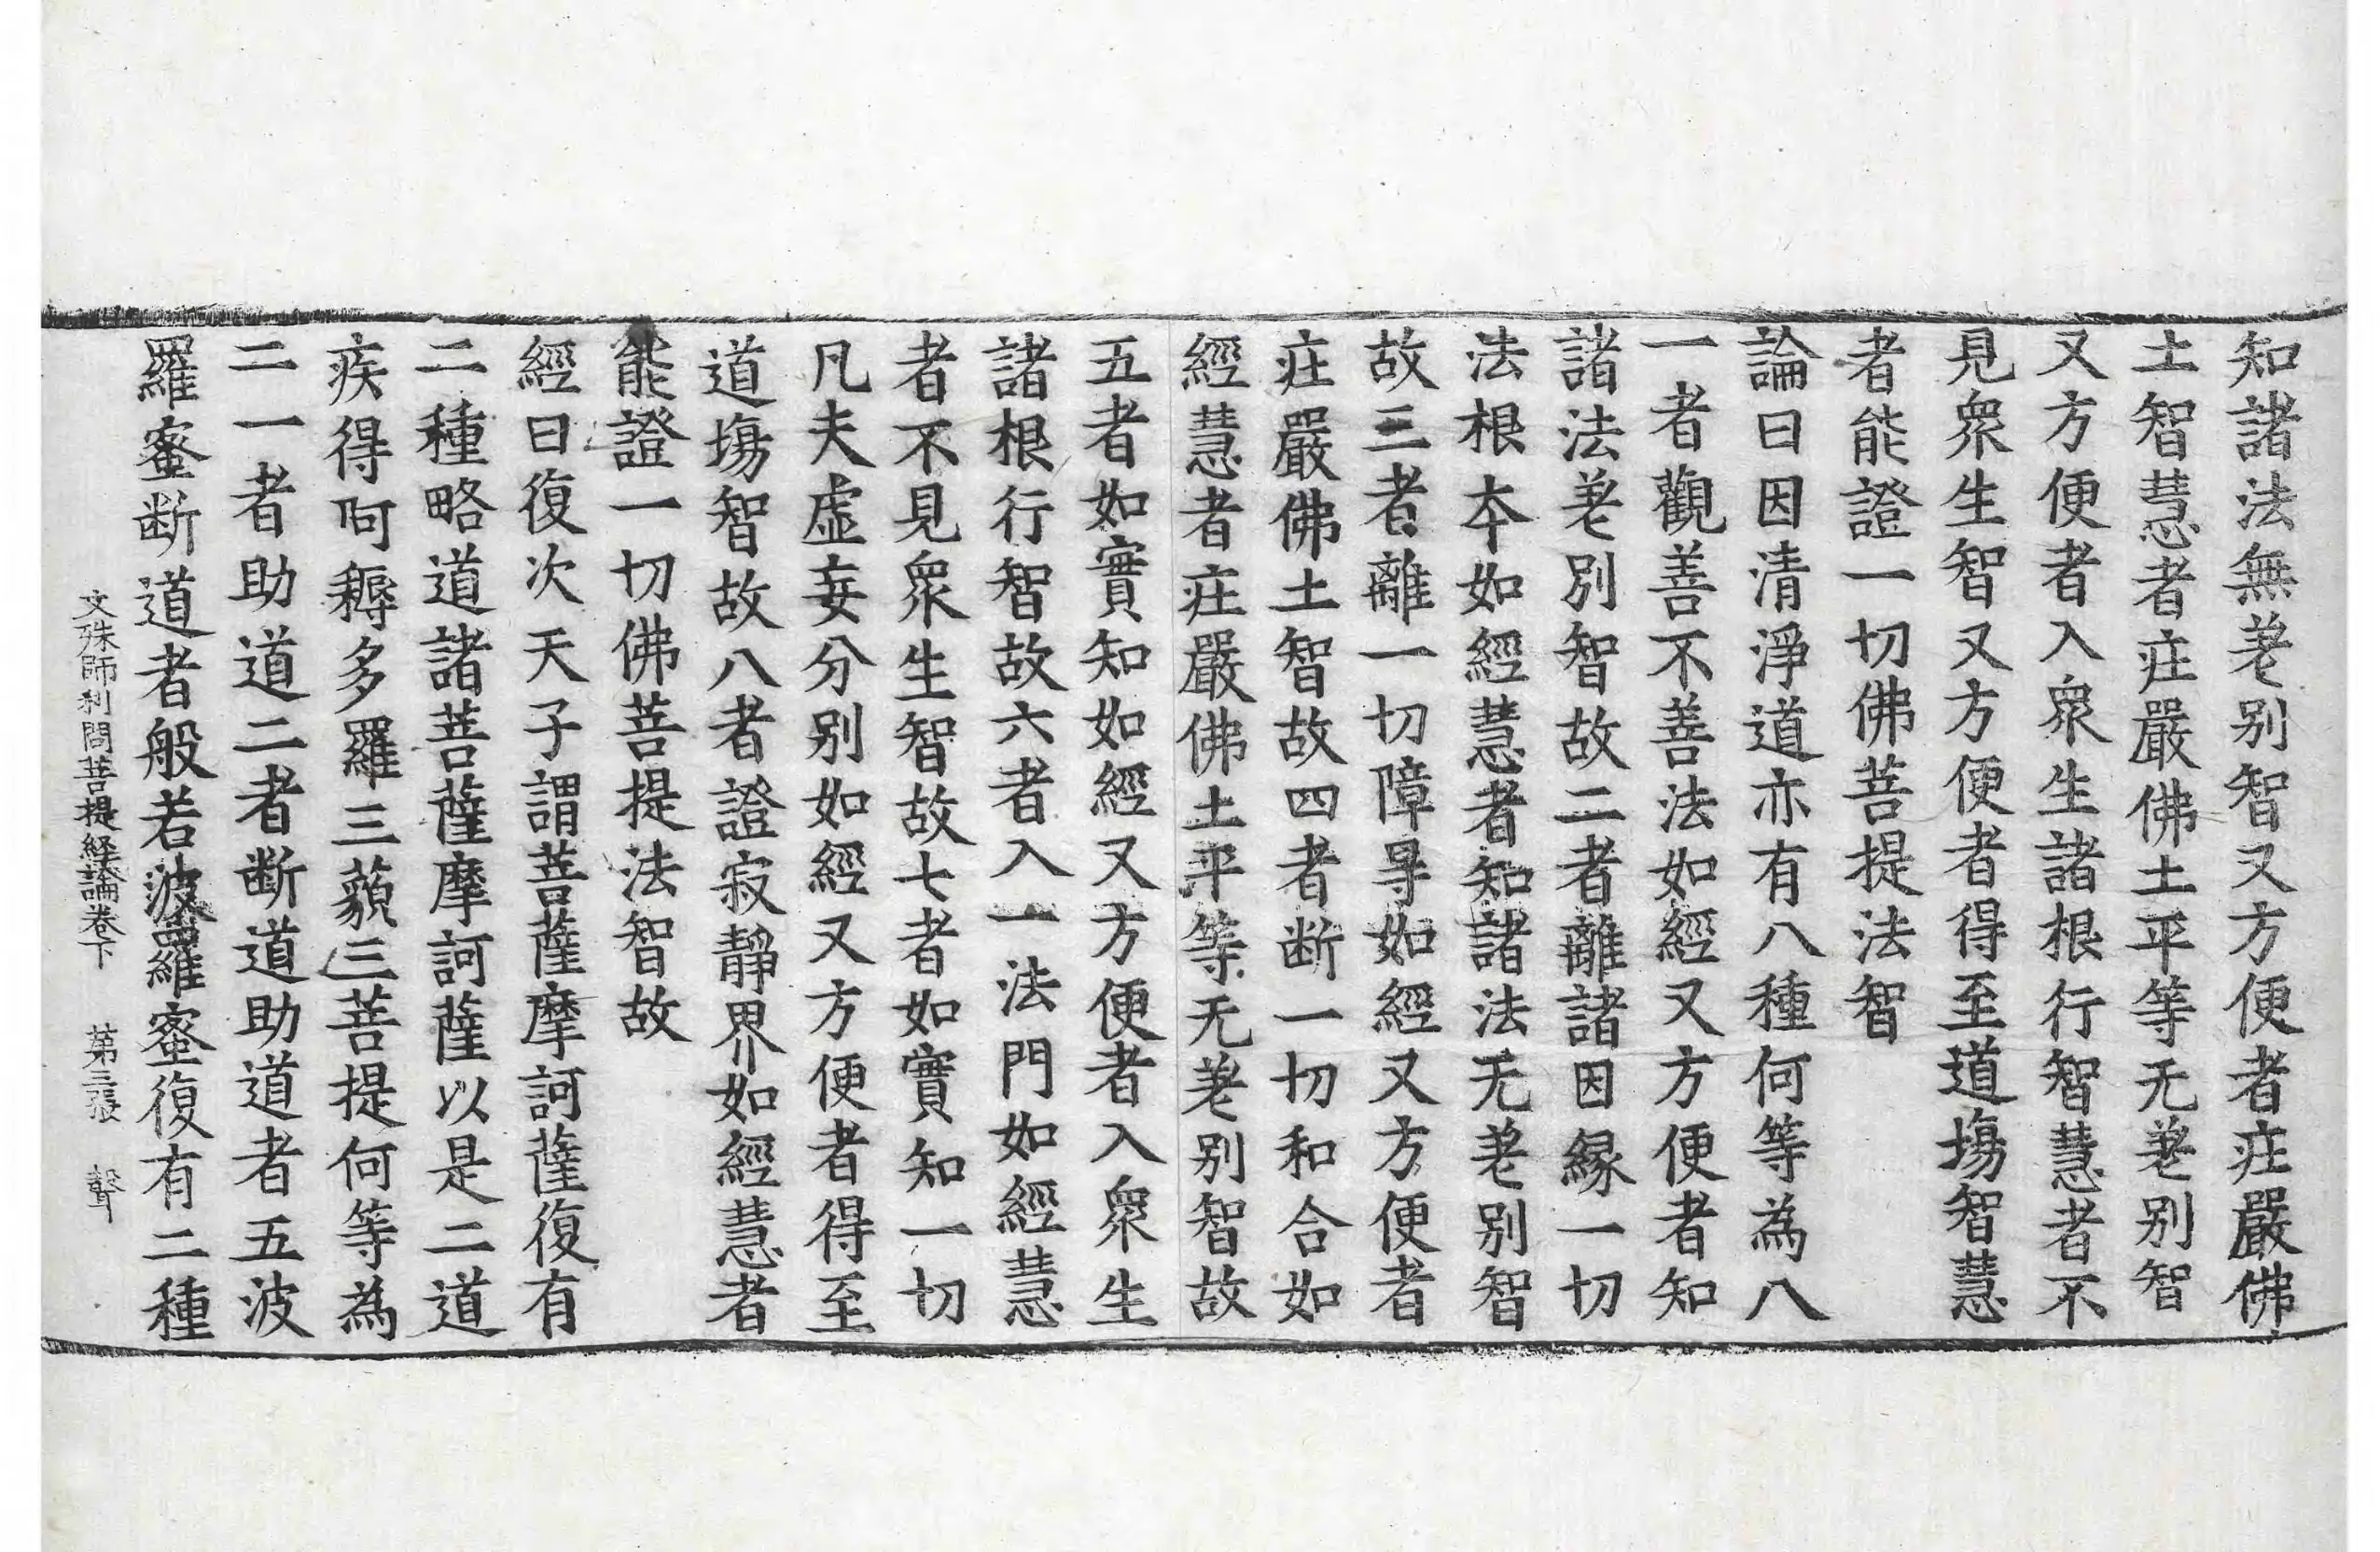 知諸法無差别智又方便者莊嚴佛
土智慧者莊嚴佛土平等无差别智
又方便者入衆生諸根行智慧者不
見衆生智又方便者得至道場智慧
者能證一切佛菩提法智
論曰因清淨道亦有八種何等為八
一者觀善不善法如經又方便者知
諸法差別智故二者離諸因緣一切
法根本如經慧者知諸法无差别智
故三者離一切障㝵如經又方便者
莊嚴佛土智故四者断一切和合如
經慧者莊嚴佛土平等无差别智故
五者如實知如經又方便者入衆生
諸根行智故六者入一法門如經慧
者不見衆生智故七者如實知一切
凡夫虛妄分别如經又方便者得至
道場智故八者證寂靜界如經慧者
能證一切佛菩提法智故
經曰復次天子謂菩薩摩訶薩復有
二種略道諸菩薩摩訶薩以是二道
疾得阿耨多羅三藐三菩提何等為
二一者助道二者断道助道者五波
羅蜜断道者般若波羅蜜復有二種
文殊師利問菩提経論卷下 第三張 聲